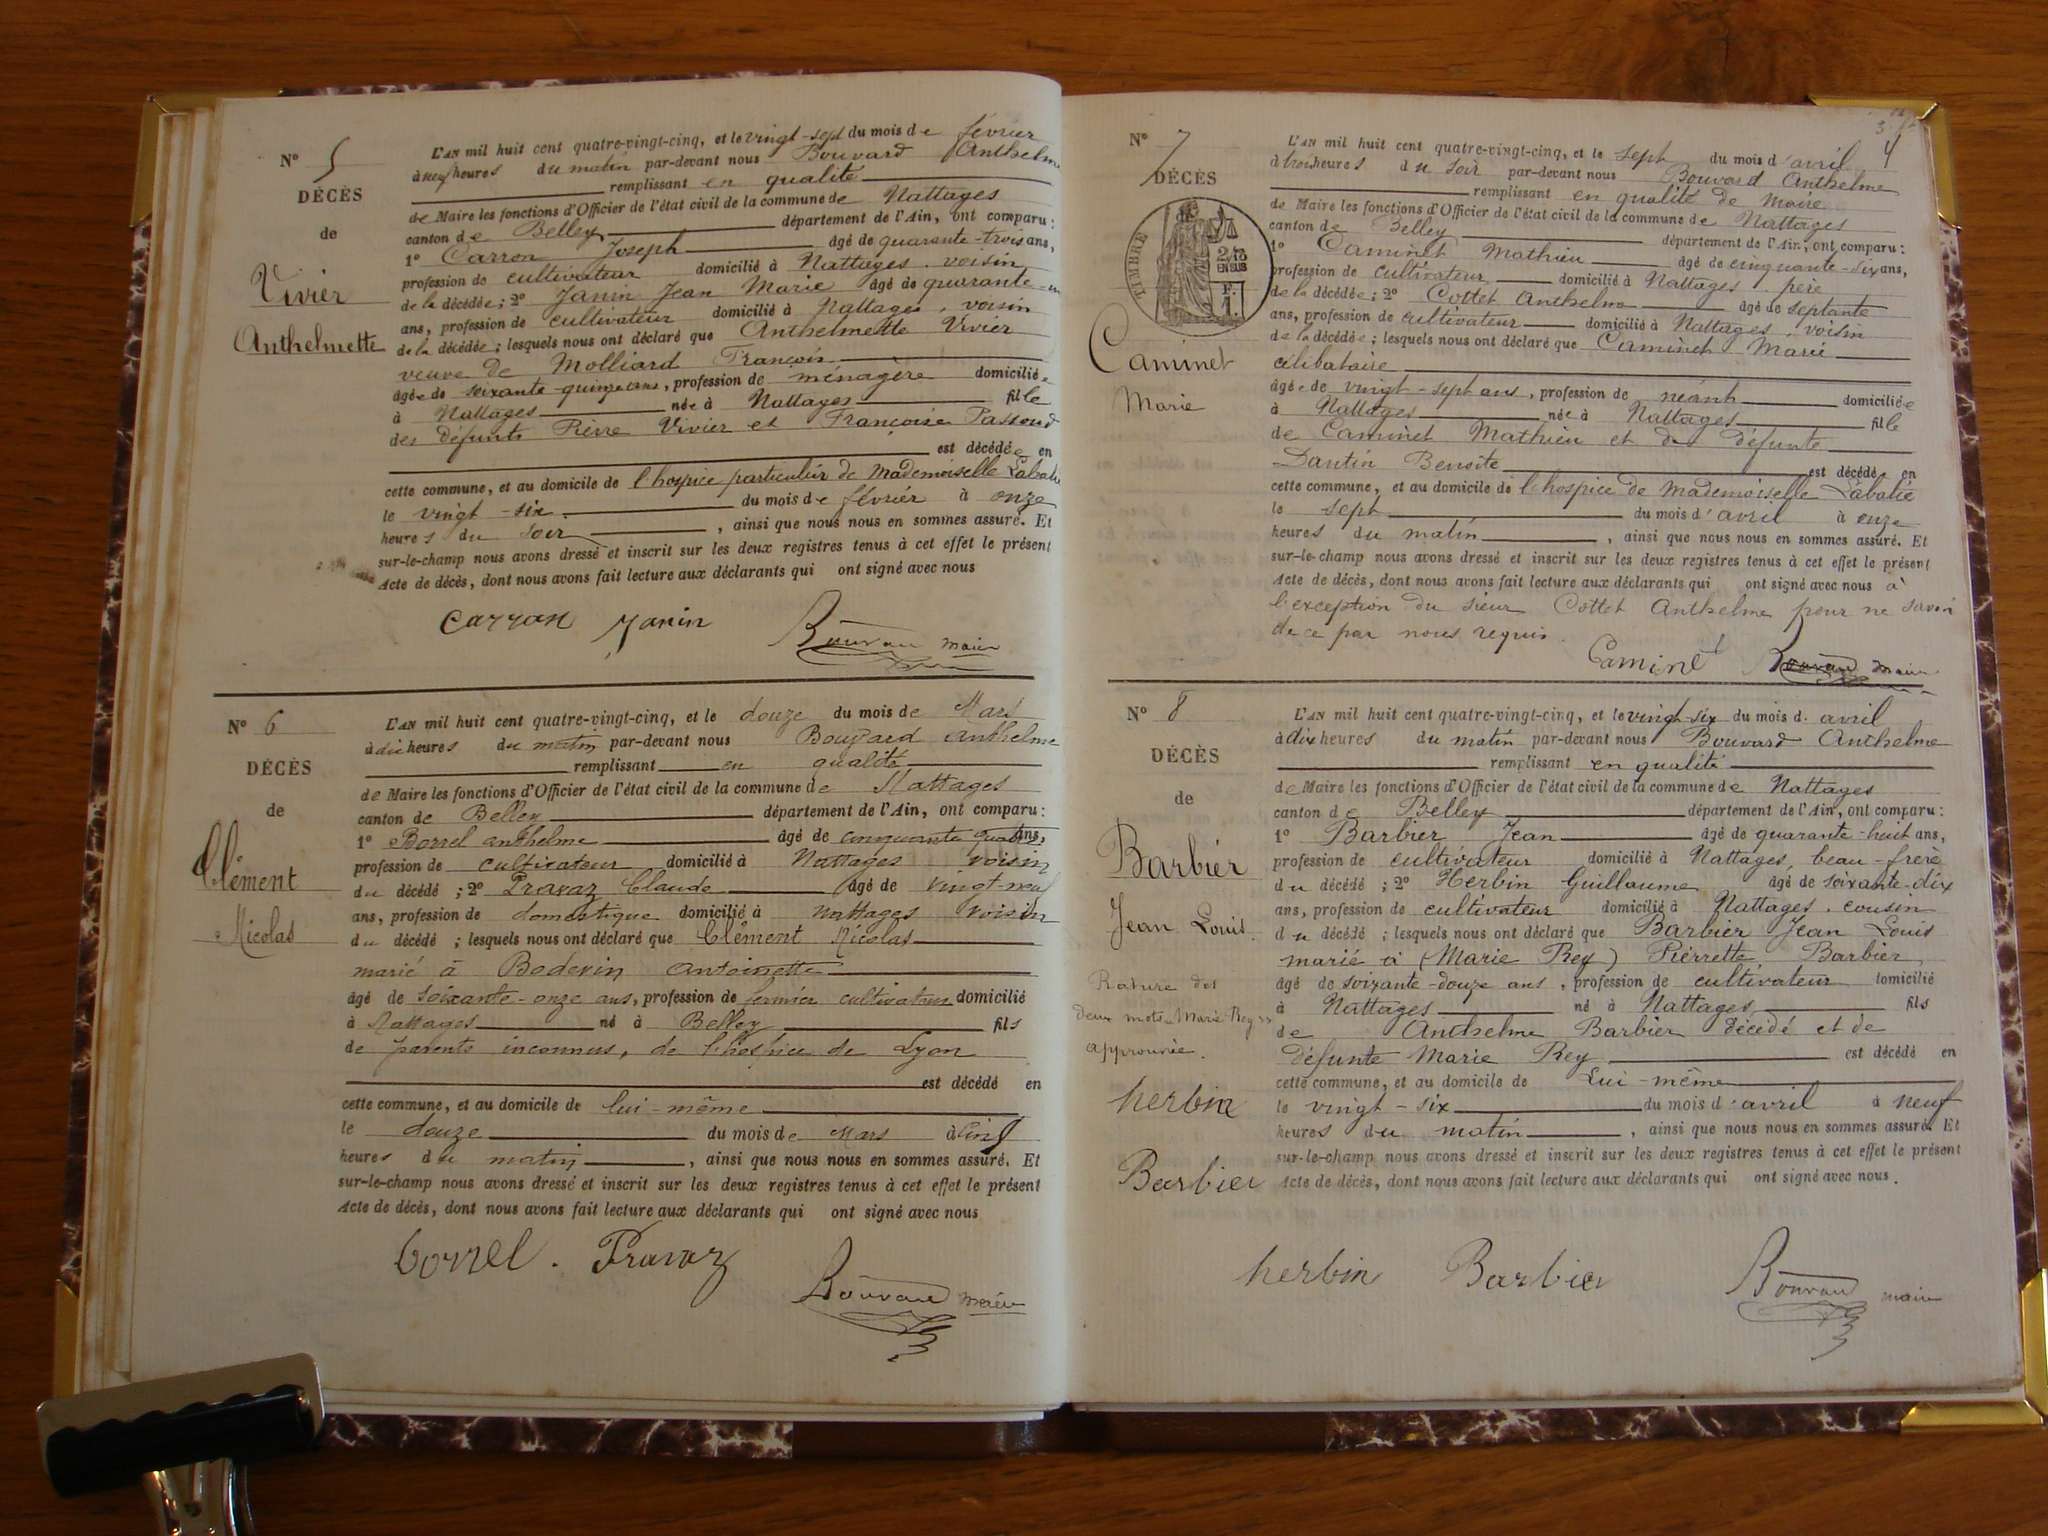 N° 5
DÉCÈS
de
Vivier
Anthelmette
L'AN mil huit cent quatre-vingt-cinq, et le vingt-sept du mois de février
à neuf heures du matin par-devant nous Bouvard Anthelme
remplissant en qualité
de Maire les fonctions d'Officier de l'état civil de la commune de Nattages
canton de Belley département de l'Ain, ont comparu :
1° Carron Joseph âgé de quarante-trois ans,
profession de cultivateur domicilié à Nattages, voisin
de la décédée ; 2° Janin Jean Marie âgé de quarante-un
ans, profession de cultivateur domicilié à Nattages, voisin
de la décédée ; lesquels nous ont déclaré que Anthelmette Vivier
veuve de Molliard François
âgée de soixante-quinze ans, profession de ménagère domiciliée
à Nattages née à Nattages fille
des défunts Pierre Vivier et Françoise Passoud
est décédée en
cette commune, et au domicile de l'hospice particulier de Mademoiselle Labatie
le vingt-six du mois de février à onze
heures du soir , ainsi que nous nous en sommes assuré. Et
sur-le-champ nous avons dressé et inscrit sur les deux registres tenus à cet effet le présent
Acte de décès, dont nous avons fait lecture aux déclarants qui ont signé avec nous
Carron Janin Bouvard maire
N° 6
DÉCÈS
de
Clément
Nicolas
L'AN mil huit cent quatre-vingt-cinq, et le douze du mois de Mars
à dix heures du matin par-devant nous Bouvard Anthelme
remplissant en qualité
de Maire les fonctions d'Officier de l'état civil de la commune de Nattages
canton de Belley département de l'Ain, ont comparu :
1° Borrel anthelme âgé de cinquante quatre ans,
profession de cultivateur domicilié à Nattages voisin
du décédé ; 2° Pravaz Claude âgé de vingt-neuf
ans, profession de domestique domicilié à Nattages voisin
du décédé ; lesquels nous ont déclaré que Clément Nicolas
marié à Boderin Antoinette
âgé de soixante-onze ans, profession de fermier cultivateur domicilié
à Nattages né à Belley fils
de parents inconnus, de l'hospice de Lyon
est décédé en
cette commune, et au domicile de lui-même
le douze du mois de Mars à cinq
heures du matin , ainsi que nous nous en sommes assuré. Et
sur-le-champ nous avons dressé et inscrit sur les deux registres tenus à cet effet le présent
Acte de décès, dont nous avons fait lecture aux déclarants qui ont signé avec nous
borrel . Pravaz
Bouvard maire
4
N° 7
DÉCÈS
TIMBRE
2/10
EN SUS
F.
1.
Caminet
Marie
L'AN mil huit cent quatre-vingt-cinq, et le sept du mois d'avril
à trois heures du soir par-devant nous Bouvard Anthelme
remplissant en qualité de Maire
de Maire les fonctions d'Officier de l'état civil de la commune de Nattages
canton de Belley département de l'Ain, ont comparu :
1° Caminet Mathieu âgé de cinquante-six ans,
profession de cultivateur domicilié à Nattages, père
de la décédée ; 2° Cottet Anthelme âgé de septante
ans, profession de cultivateur domicilié à Nattages, voisin
de la décédée ; lesquels nous ont déclaré que Caminet Marie
célibataire
âgée de vingt-sept ans, profession de néant domiciliée
à Nattages née à Nattages fille
de Caminet Mathieu et de défunte
Dantin Benoite est décédée en
cette commune, et au domicile de l'hospice de Mademoiselle Labatie
le sept du mois d'avril à onze
heures du matin , ainsi que nous nous en sommes assuré. Et
sur-le-champ nous avons dressé et inscrit sur les deux registres tenus à cet effet le présent
Acte de décès, dont nous avons fait lecture aux déclarants qui ont signé avec nous à
l'exception du sieur Cottet Anthelme pour ne savoir
de ce par nous requis.
Caminet Bouvard maire
N° 8
DÉCÈS
de
Barbier
Jean Louis.
Rature des
deux mots "Marie Rey"
approuvée.
herbin
Barbier
L'AN mil huit cent quatre-vingt-cinq, et le vingt-six du mois d'avril
à dix heures du matin par-devant nous Bouvard Anthelme
remplissant en qualité
de Maire les fonctions d'Officier de l'état civil de la commune de Nattages
canton de Belley département de l'Ain, ont comparu :
1° Barbier Jean âgé de quarante-huit ans,
profession de cultivateur domicilié à Nattages, beau-frère
du décédé ; 2° Herbin Guillaume âgé de soixante-dix
ans, profession de cultivateur domicilié à Nattages, cousin
du décédé ; lesquels nous ont déclaré que Barbier Jean Louis
marié à (Marie Rey) Pierrette Barbier
âgé de soixante-douze ans, profession de cultivateur domicilié
à Nattages né à Nattages fils
de Anthelme Barbier décédé et de
défunte Marie Rey est décédé en
cette commune, et au domicile de Lui-même
le vingt-six du mois d'avril à neuf
heures du matin , ainsi que nous nous en sommes assuré. Et
sur-le-champ nous avons dressé et inscrit sur les deux registres tenus à cet effet le présent
Acte de décès, dont nous avons fait lecture aux déclarants qui ont signé avec nous.
herbin Barbier Bouvard maire